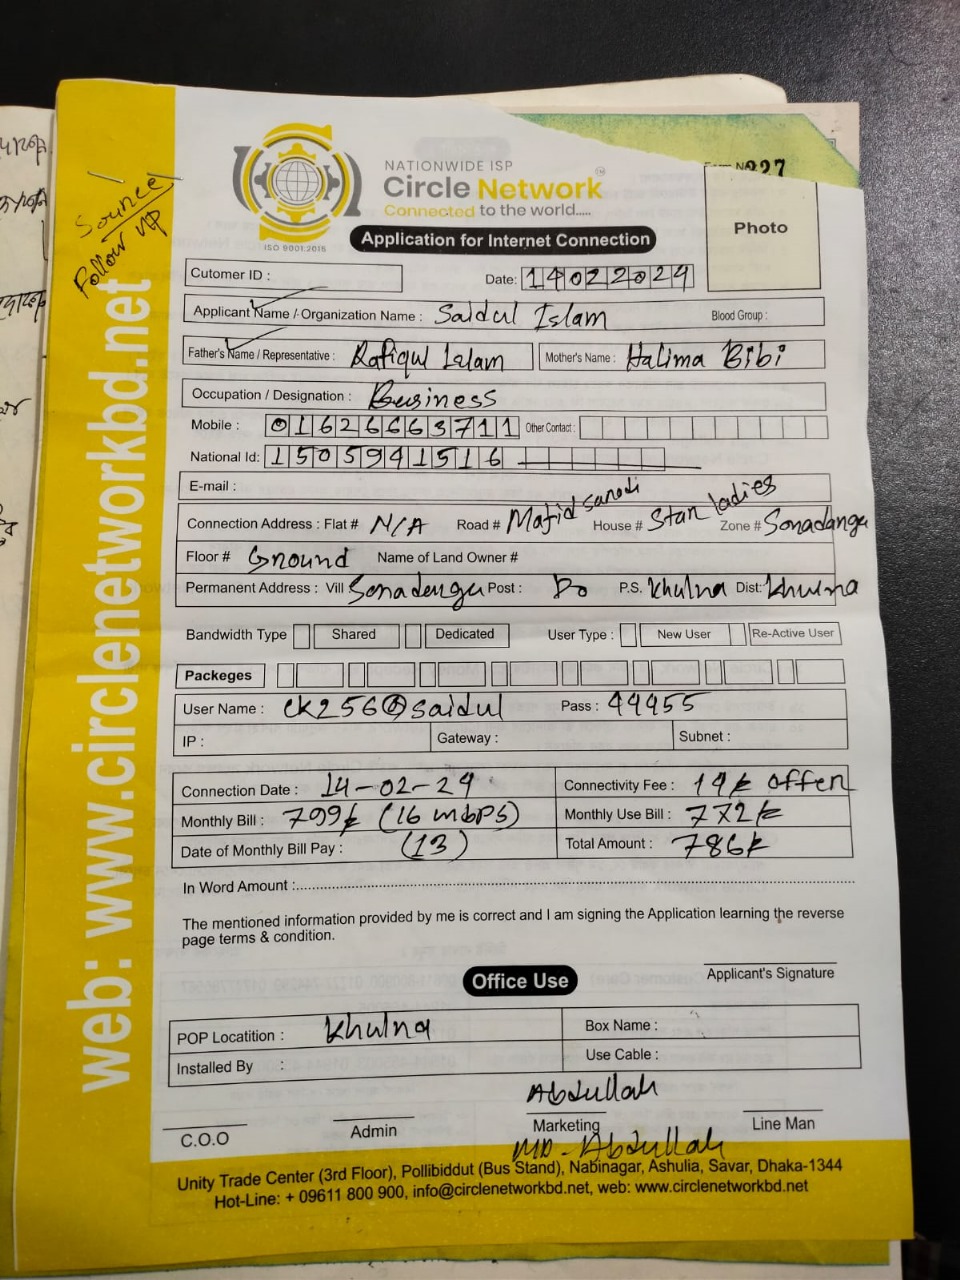 Source
Follow MP
web: www.circlenetworkbd.net
No 227
NATIONWIDE ISP
Circle Network
TM
Connected to the world.....
ISO 9001:2015
Application for Internet Connection
Photo
Cutomer ID :
Date: 14022024
Applicant Name / Organization Name : Saidul Islam Blood Group :
Father's Name / Representative : Rafiqul Islam Mother's Name : Halima Bibi
Occupation / Designation : Business
Mobile : 01626663711 Other Contact :
National Id: 1505941516
E-mail :
Connection Address : Flat # N/A Road # Mafid sarodi House # Stan ladies Zone # Sonadanga
Floor # Ground Name of Land Owner #
Permanent Address : Vill Sonadanga Post : Do P.S. Khulna Dist: Khulna
Bandwidth Type Shared Dedicated User Type : New User Re-Active User
Packeges
User Name : CK256@saidul Pass : 44455
IP : Gateway : Subnet :
Connection Date : 14-02-24 Connectivity Fee : 14/= offer
Monthly Bill : 799/= (16 mbps) Monthly Use Bill : 772/=
Date of Monthly Bill Pay : (13) Total Amount : 786/=
In Word Amount :
The mentioned information provided by me is correct and I am signing the Application learning the reverse
page terms & condition.
Applicant's Signature
Office Use
POP Locatition : Khulna Box Name :
Installed By : Use Cable :
Abdullah
C.O.O Admin Marketing Line Man
MD-Abdullah
Unity Trade Center (3rd Floor), Pollibiddut (Bus Stand), Nabinagar, Ashulia, Savar, Dhaka-1344
Hot-Line: + 09611 800 900, info@circlenetworkbd.net, web: www.circlenetworkbd.net